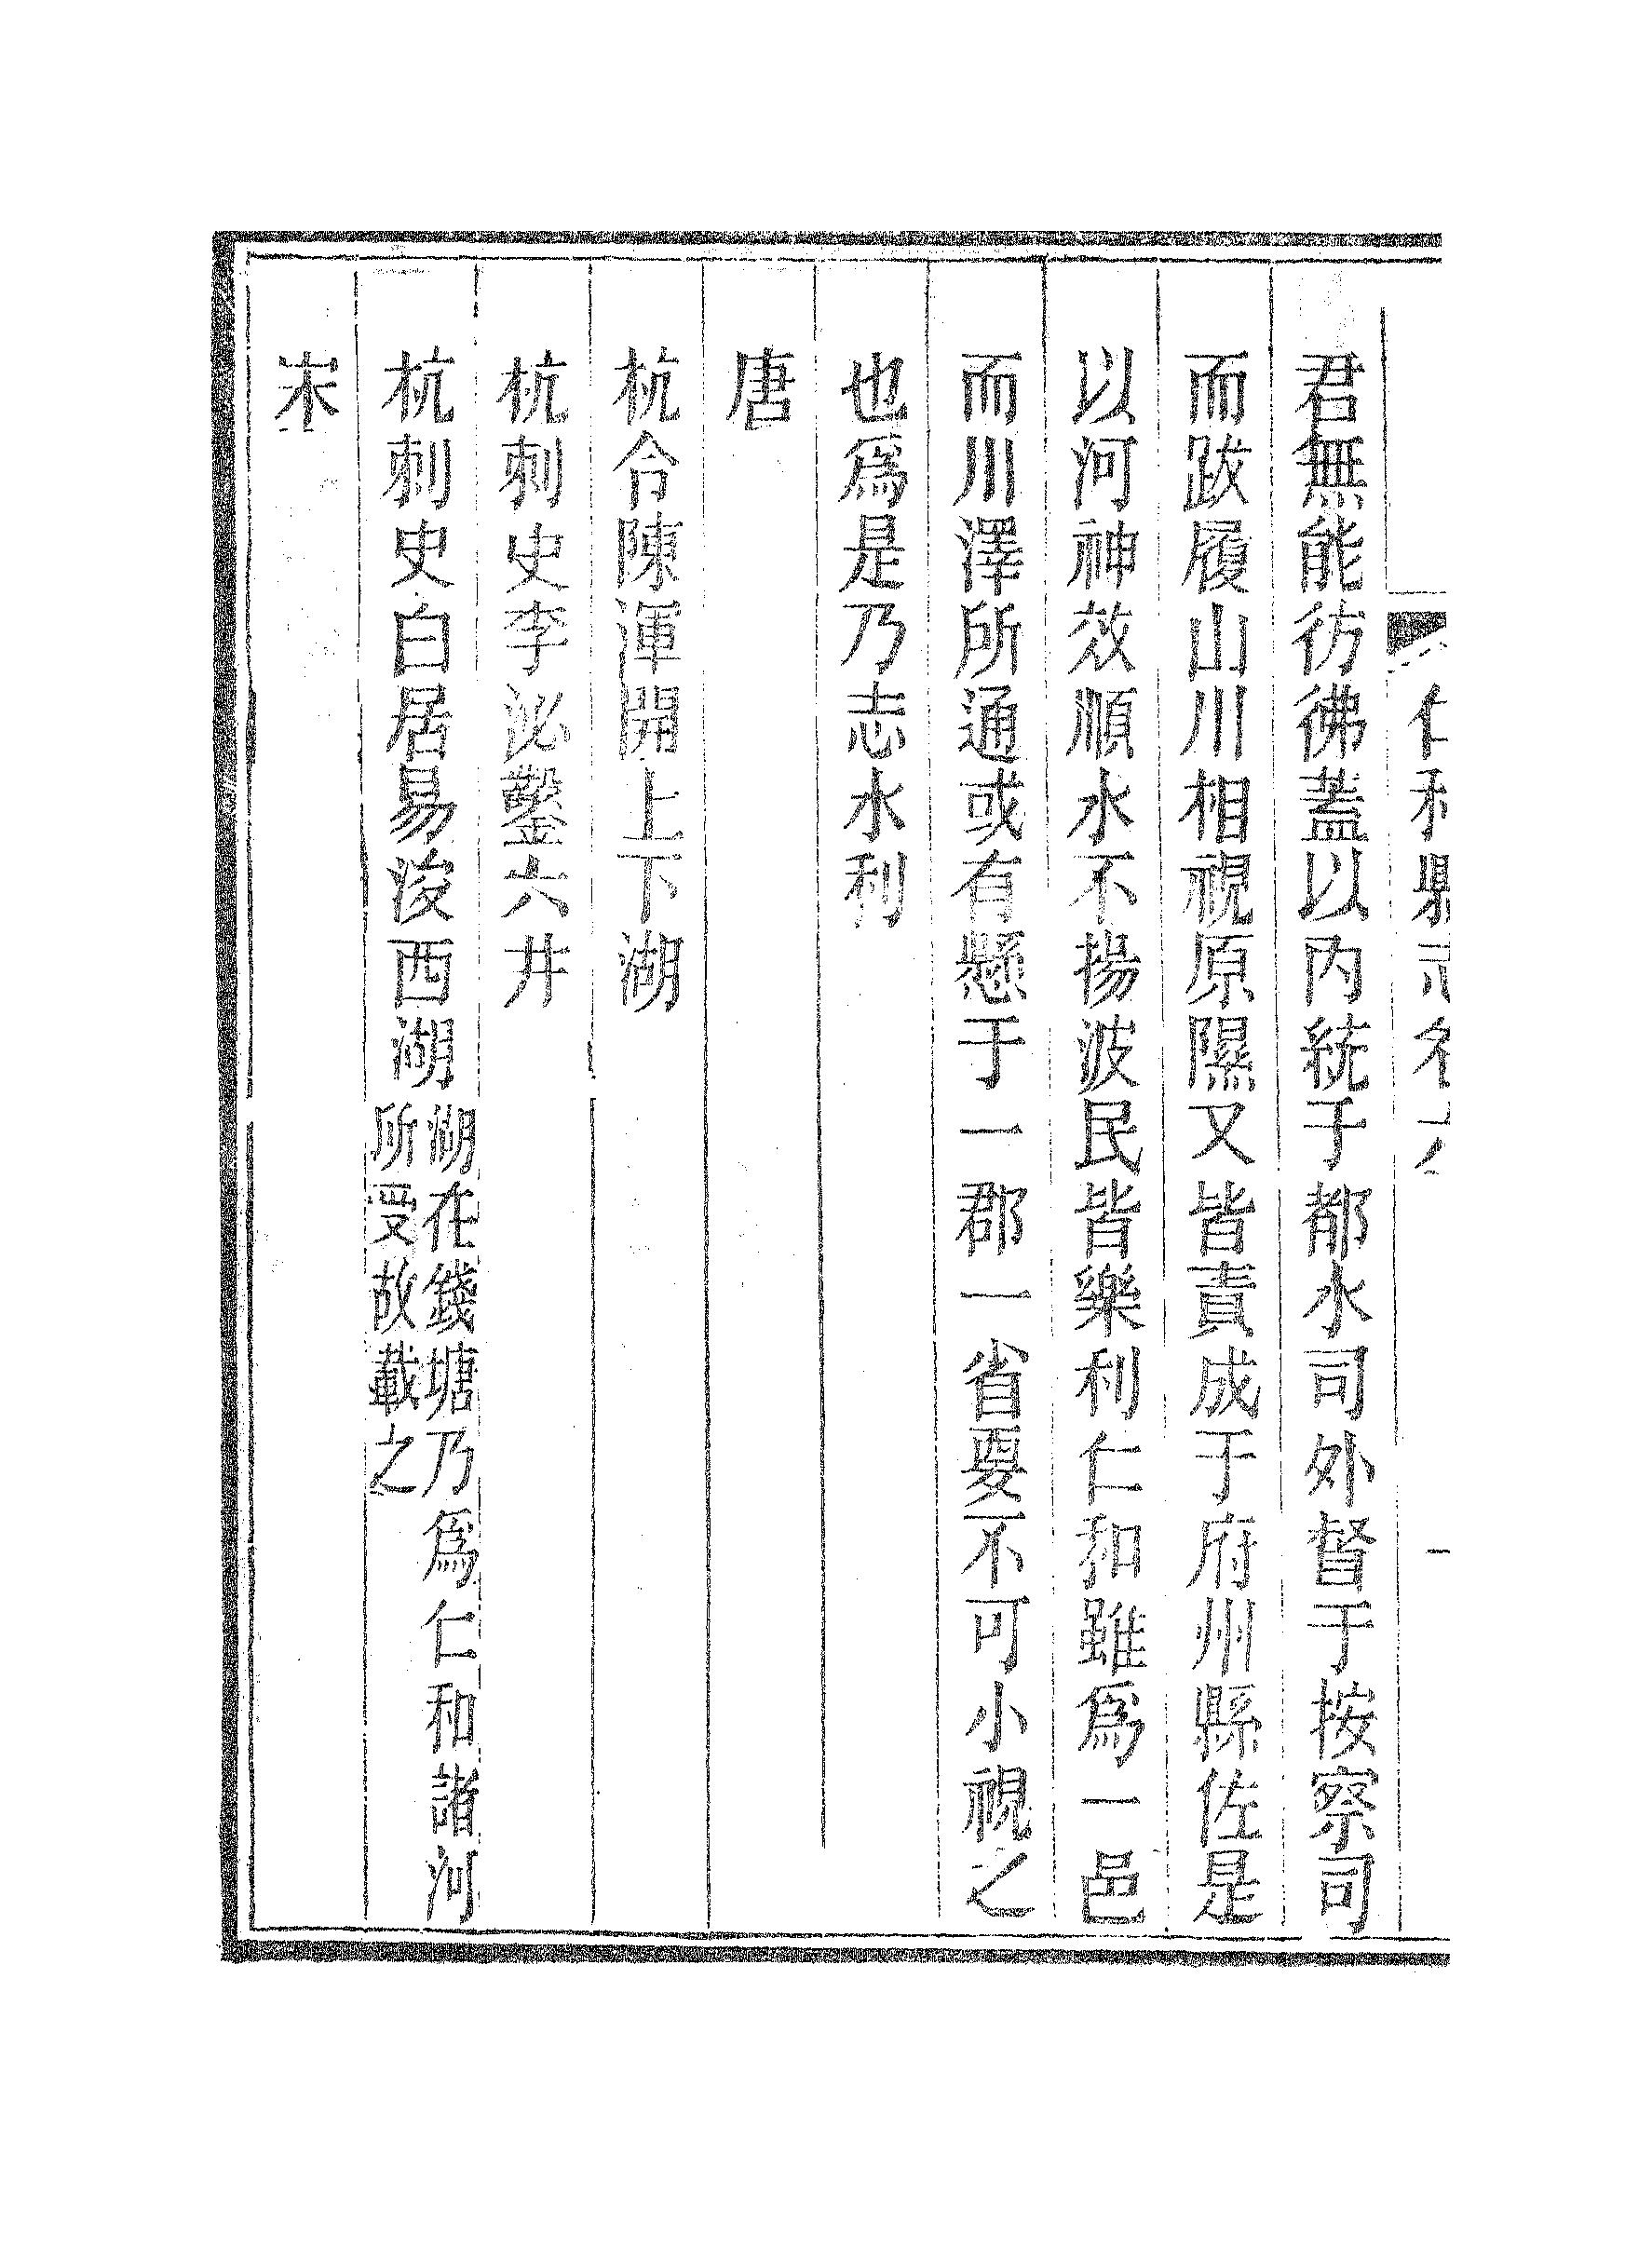 君無能彷彿蓋以内統于都水司外督于按察司
而跋履山川相視原隰又皆責成于府州縣佐是
以河神效順水不揚波民皆樂利仁和雖爲一邑
而川澤所通或有懸于一郡一省要不可小視之
也爲是乃志水利
唐
杭令陳渾開上下湖
杭刺史李泌鑿六井
杭刺史白居易浚西湖湖在錢塘乃爲仁和諸河
所受故載之
宋